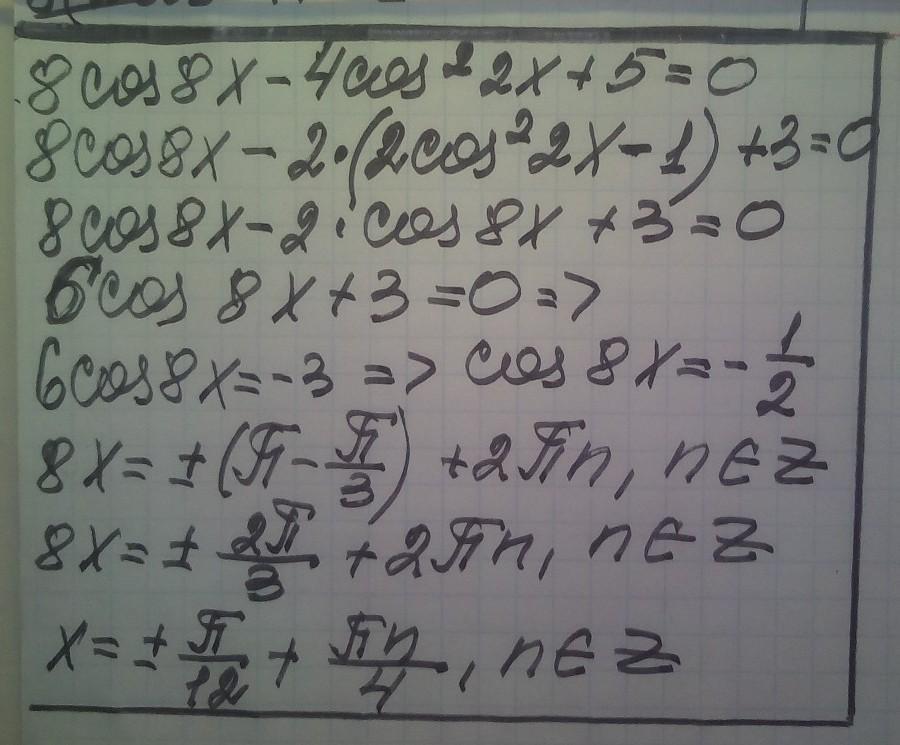 8cos8x-4cos²2x+5=0
8cos8x-2·(2cos²2x-1)+3=0
8cos8x-2·cos8x+3=0
6cos 8x+3=0=>
6cos8x=-3 => cos8x=-1/2
8x=±(π-π/3)+2πn, n∈Z
8x=±2π/3+2πn, n∈Z
x=±π/12+πn/4, n∈Z